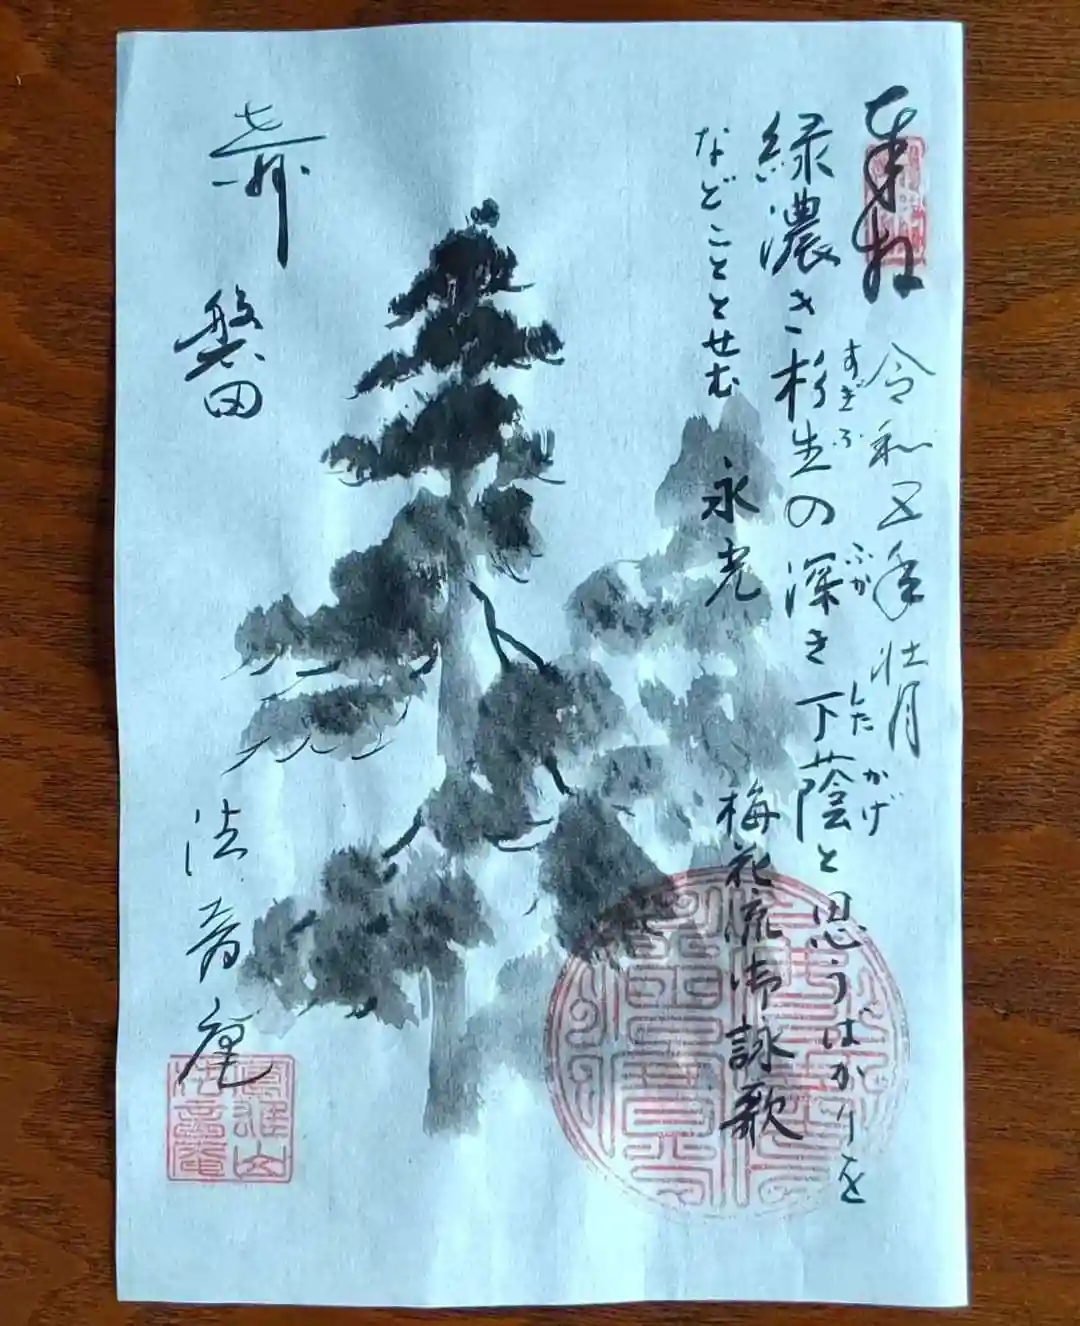 奉拝 令和五年壮月
緑濃き杉生の深き下蔭と思うばかりを
すぎふ ふか した かげ
などこととせむ 永光 梅花流御詠歌
磐田 法音庵